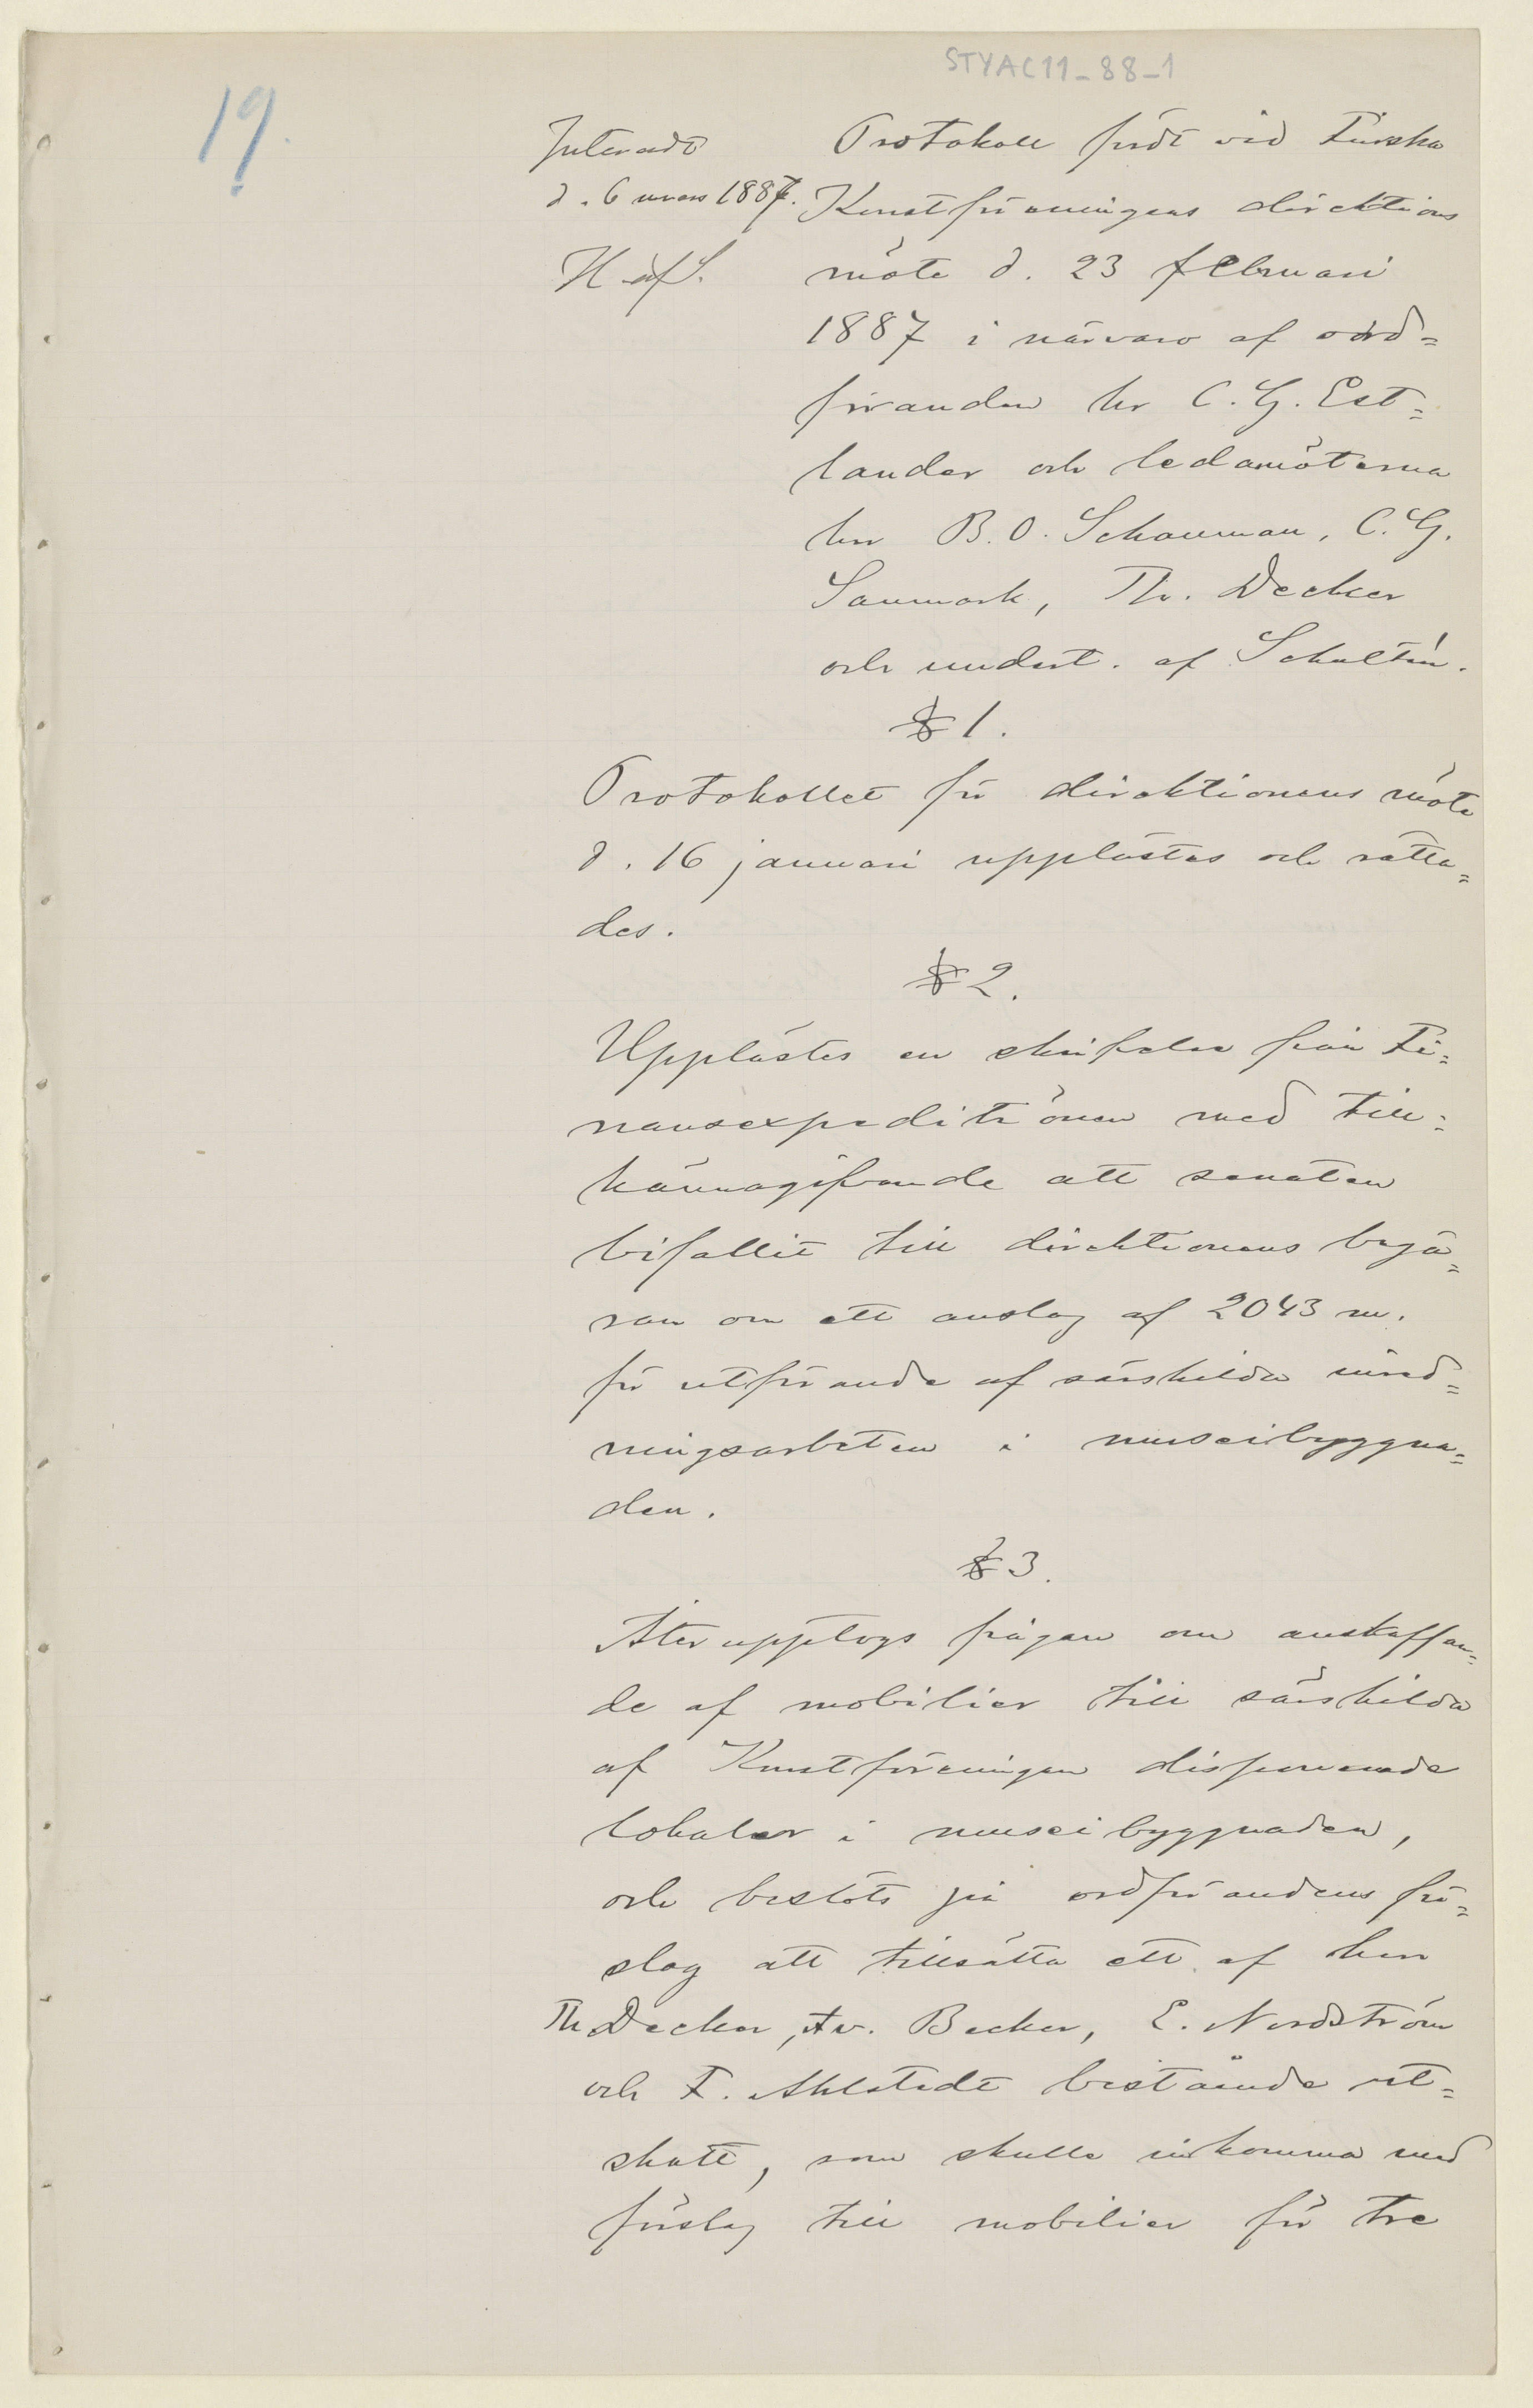 STYAC11-88-1
19.
Justeradt
d. 6 mars 1887.
H af S.
Protokoll fördt vid Finska
Konstföreningens direktions
möte d. 23 februari
1887 i närvaro af ord=
föranden hr C. G. Est=
lander och ledamöterna
hrr B. O. Schauman, C. G.
Sanmark, Th. Decker
och undert. af Schultén.
§ 1.
Protokollet för direktionens möte
d. 16 januari upplästes och rätta=
des.
§ 2.
Upplästes en skrifvelse från Fi=
nansexpeditionen med till=
kännagifvande att senaten
bifallit till direktionens begä=
ran om ett anslag af 2043 m.
för utförande af särskilda inred=
ningsarbeten i museibyggna=
den.
§ 3.
Återupptogs frågan om anskaffan=
de af mobilier till särskilda
af Konstföreningen disponerade
lokaler i museibyggnaden,
och beslöts på ordförandens för=
slag att tillsätta ett af hrr
Th Decker, Av. Becker, E. Nordström
och F. Ahlstedt bestående ut=
skott, som skulle inkomma med
förslag till mobilier för tre